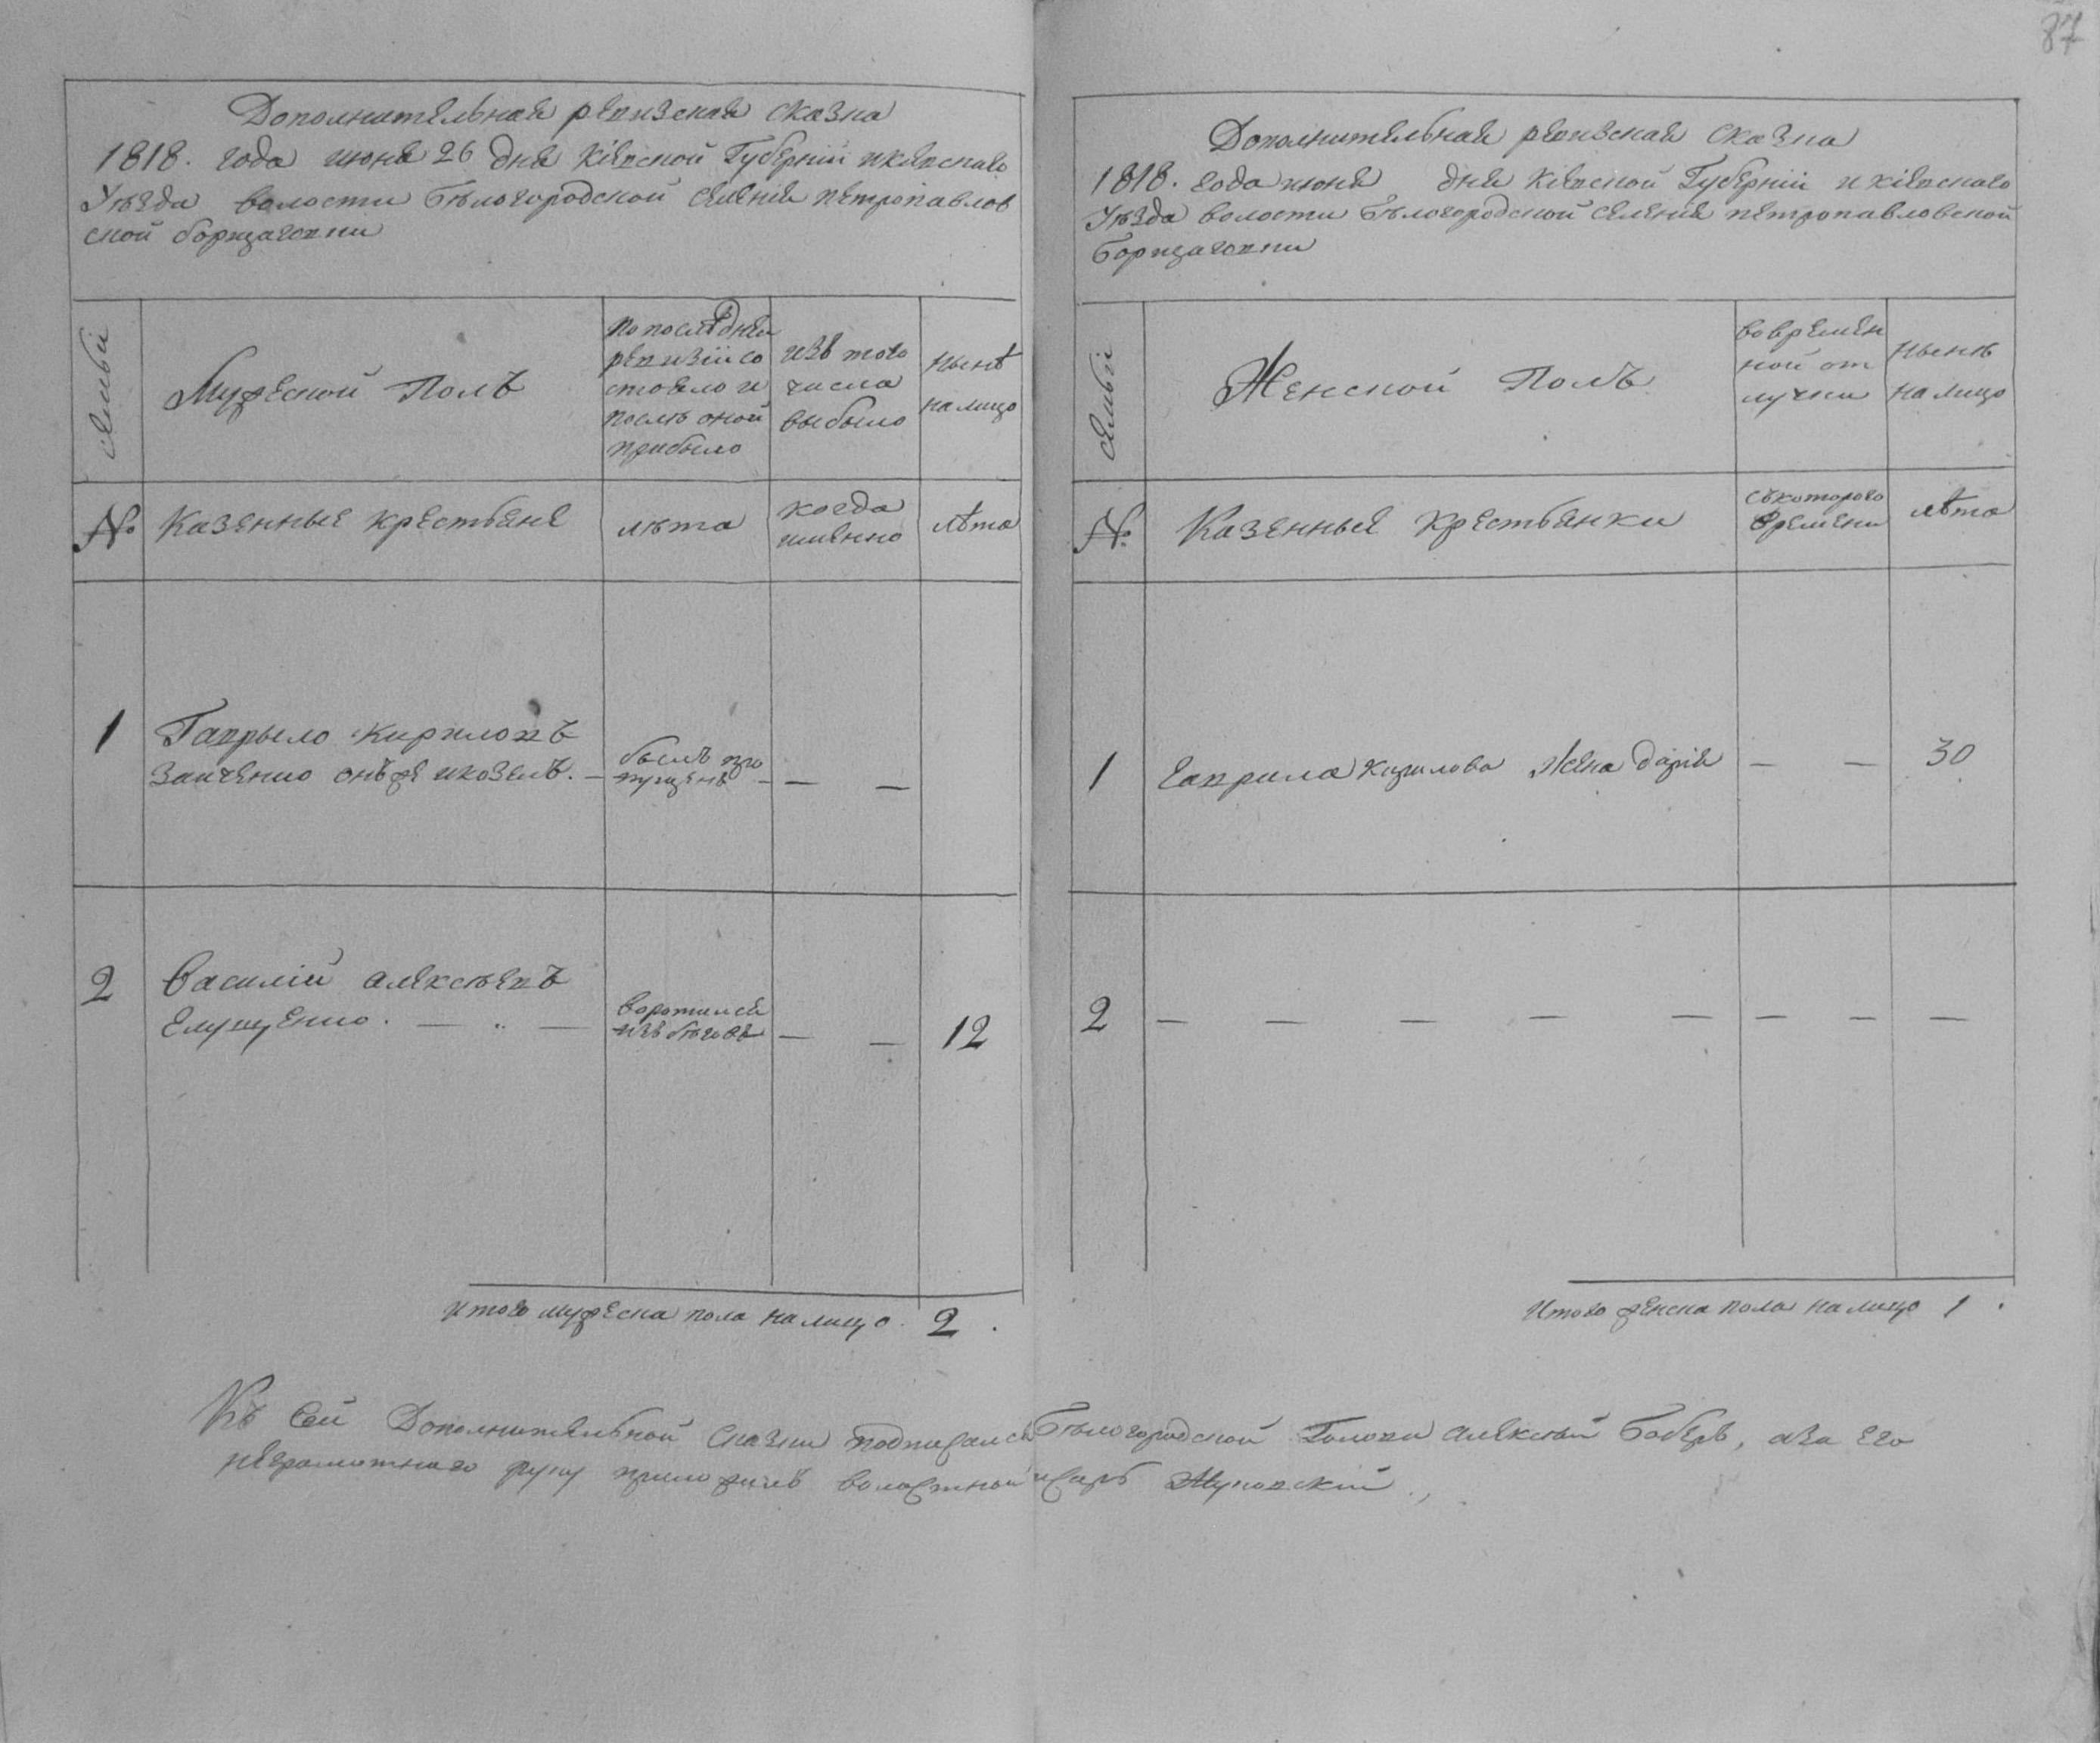 87
Дополнительная ревизская сказка
1818. года июня 26 дня Кіевской Губерніи и кіевскаго
Уѣзда волости Бѣлогородской селенія петропавлов
ской борщаговки
семьи
Мужеской Полъ
по послѣдней
ревизіи со
стояло и
послѣ оной
прибыло
изъ того
числа
выбыло
нынѣ
налицо
№
Казенные крестьяне
лѣта
когда
именно
лѣта
1
Гаврыло Кириловъ
Заиченко онъ же и козелъ. —
былъ про
пущенъ —
— —
2
Василій алексѣевъ
Елущенко. — „ —
воротился
изъ бѣговъ
— —
12
Итого мужеска пола налицо. 2.
Дополнительная ревизская сказка
1818. года июня дня Кіевской Губерніи и кіевскаго
Уѣзда волости Бѣлогородской селенія петропавловской
Борщаговки
семьи
Женской Полъ
во времен
ной от
лучки
нынѣ
налицо
№
Казенные Крестьянки
съ котораго
времени
лѣта
1
Гаврила Кирилова Жена дарія
— —
30
2
— — — — — — — —
Итого женска пола налицо 1.
Къ Сей Дополнительной Сказки подписался Бѣлогородской Голова алексѣй Боберъ, а за его
неграмотнаго руку приложилъ волостной писарь